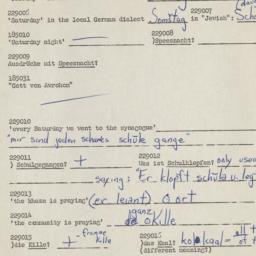 229006 229007
'Saturday' in the local German dialect Somstag in "Jewish": Scha
185010 229008
'Saturday night' )Spessnacht?
229009
Ausdrücke mit Spessnacht?
185031
"Gott von Avrohom"
229010
'every Saturday we went to the synagogue'
"mir sind jeden schabes schüle gange"
229011 229012
) Schulgegangen? + Was ist Schulklopfen? only used
saying: "Er klopft schüle u. leg
229013
'the khazn is praying' (er leiant) o ort
229014
'the community is praying' ganz Kille
229015 229016
)die Kille? + fromme Kille )das Kaal?
(different meaning?)